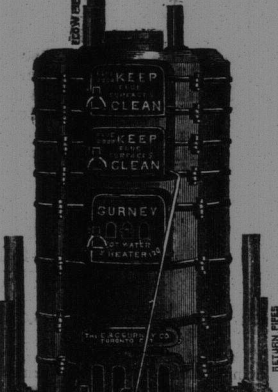 FLOW
KEEP
FLUE
SURFACES
CLEAN
KEEP
FLUE
SURFACES
CLEAN
GURNEY
HOT WATER
HEATER
THE E.&C. GURNEY CO
TORONTO
RETURN PIPES